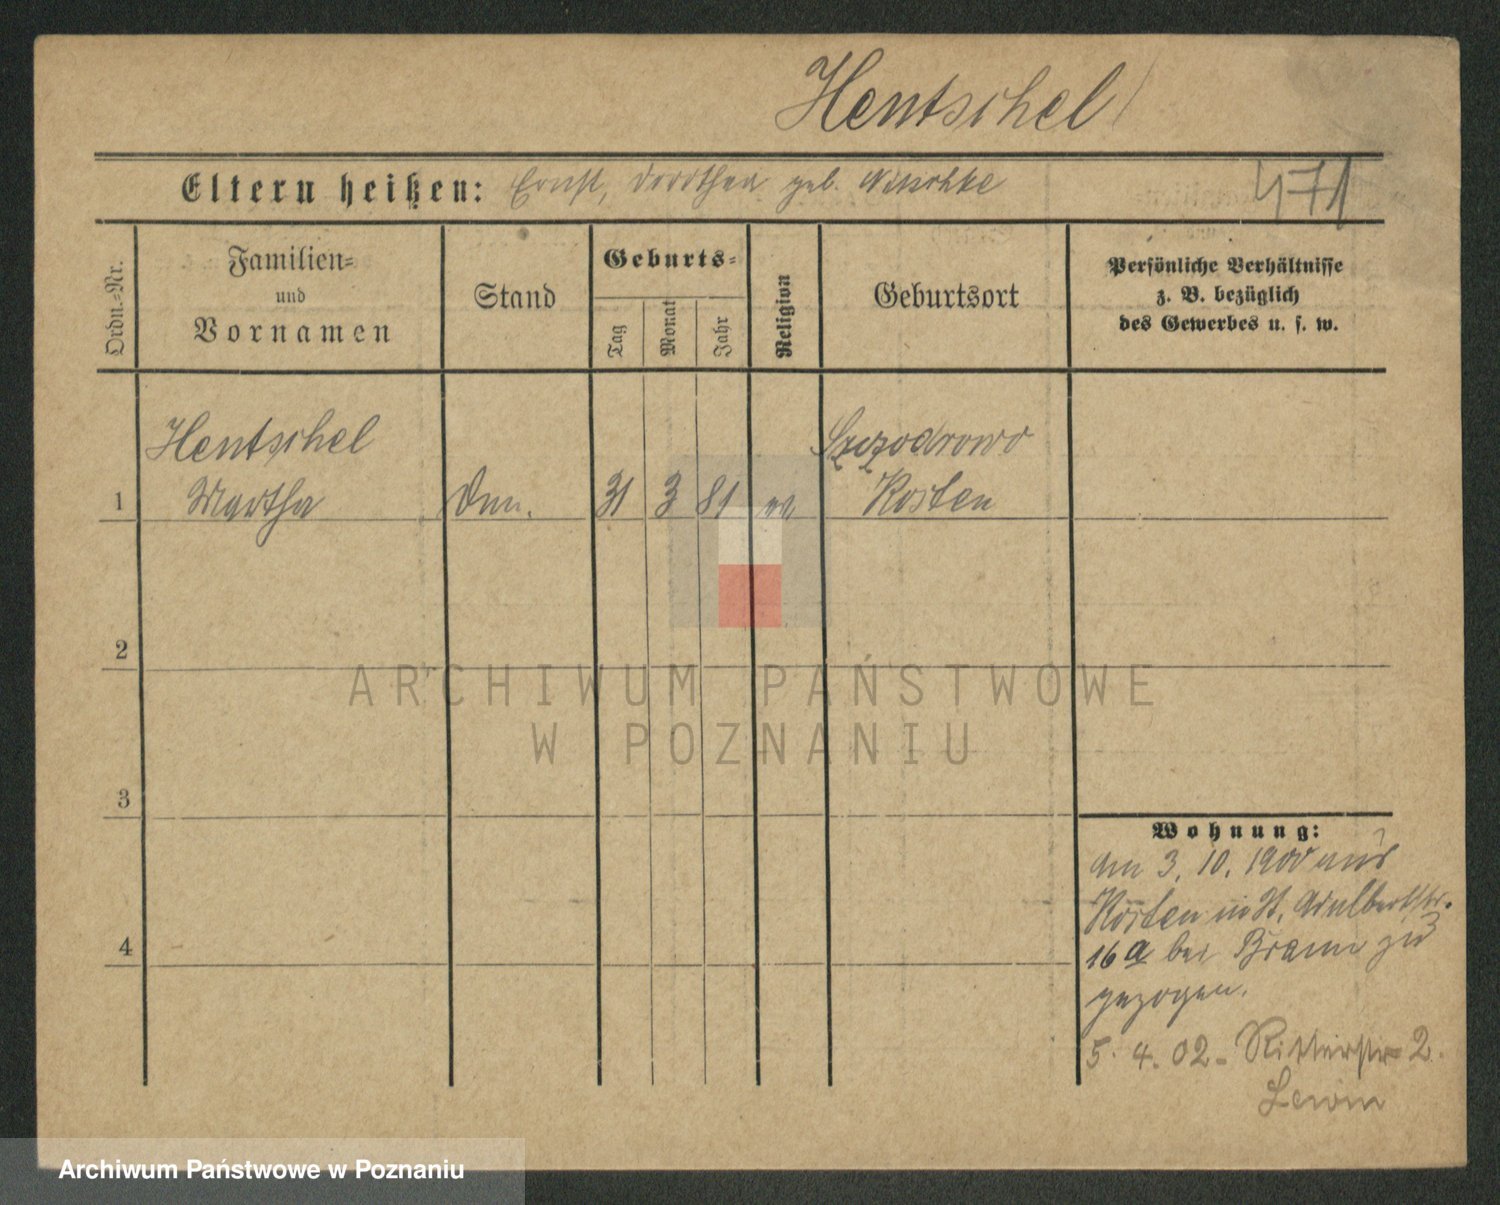 Hentschel
Eltern heißen: Ernst, Dorothea geb. Nitschke
471
Ordn.=Nr.
Familien=
und
Vornamen
Stand
Geburts=
Tag
Monat
Jahr
Religion
Geburtsort
Persönliche Verhältnisse
z. B. bezüglich
des Gewerbes u. s. w.
Hentschel Szczodrowo
1 Martha 31 3 81 Kosten
2
ARCHIWUM PAŃSTWOWE
W POZNANIU
3
Wohnung:
am 3. 10. 1900 aus
Kosten in St. Adalbertstr.
4
16a bei Braun zu
gezogen.
5. 4. 02 - Ritterstr 2.
Lewin
Archiwum Państwowe w Poznaniu